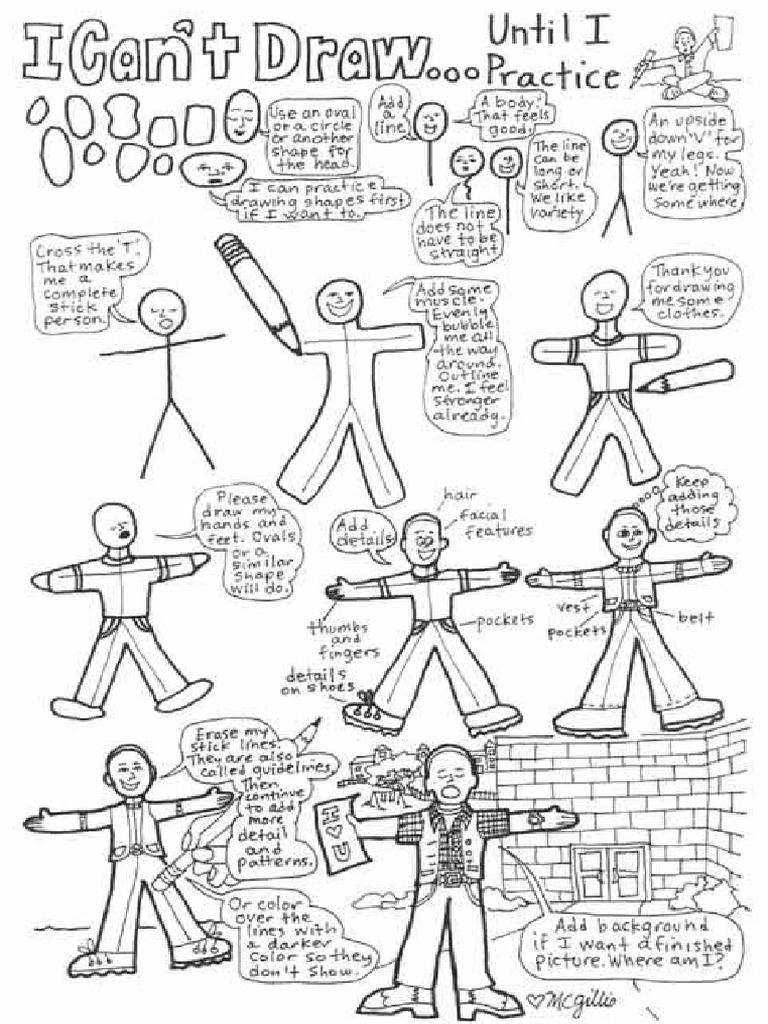 I Can't Draw...
Until I
Practice
Use an oval
or a circle
or another
shape for
the head.
I can practice
drawing shapes first
if I want to.
Add
a
line.
A body!
That feels
good!
The line
does not
have to be
straight
The line
can be
long or
short.
We like
variety
An upside
down "V" for
my legs.
Yeah! Now
we're getting
some where.
Cross the 'T'.
That makes
me a
complete
stick
person.
Add some
muscle.
Evenly
bubble
me all
the way
around.
Outline
me. I feel
stronger
already.
Thank you
for drawing
me some
clothes.
Please
draw my
hands and
feet. Ovals
or a
similar
shape
will do.
Add
details
hair
facial
features
thumbs
and
fingers
pockets
details
on shoes
Keep
adding
those
details
vest
pockets
belt
Erase my
stick lines.
They are also
called guidelines.
Then
continue
to add
more
detail
and
patterns.
Or color
over the
lines with
a darker
color so they
don't show.
I
♥
U
Add background
if I want a finished
picture. Where am I?
♡McGillis